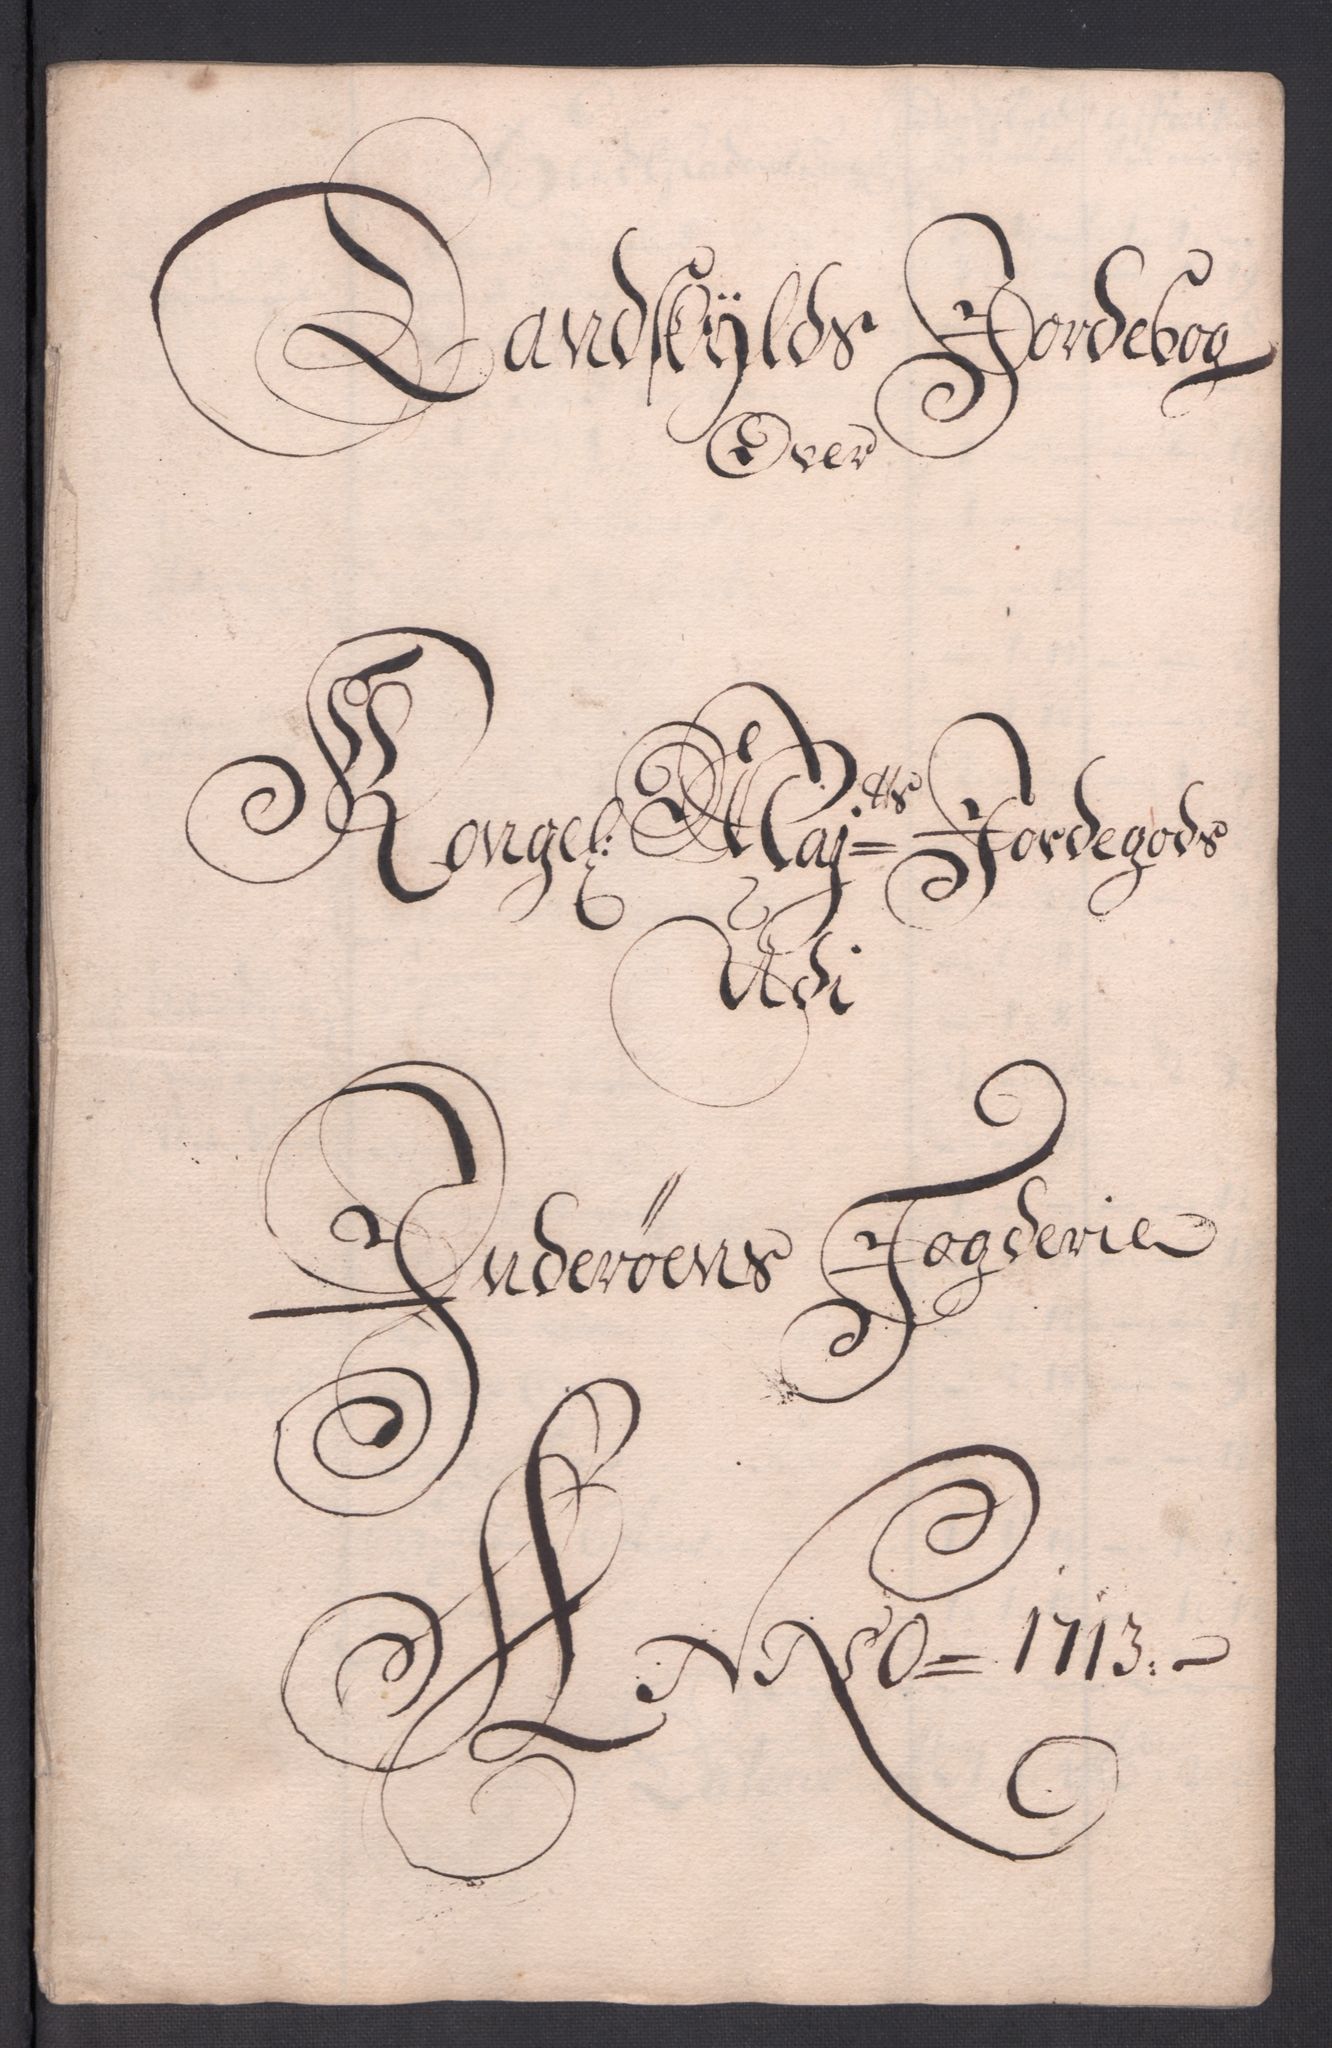 Landskÿlds Jordebog
Over
Kongel: Maj=tts Jordegods
Udi
Inderöens Fogderie
ANNO= 1713.